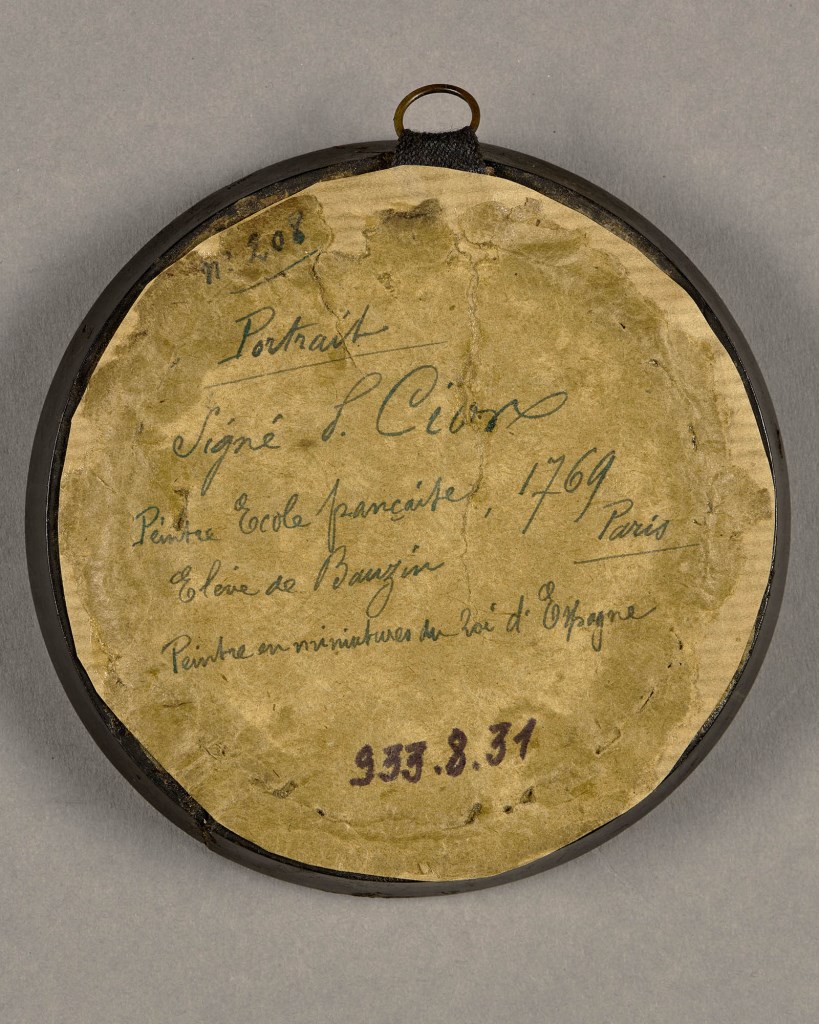 n° 208
Portrait
Signé L. Cior
Peintre Ecole française, 1769
Paris
Elève de Bauzin
Peintre en miniatures du Roi d'Espagne
933.8.31